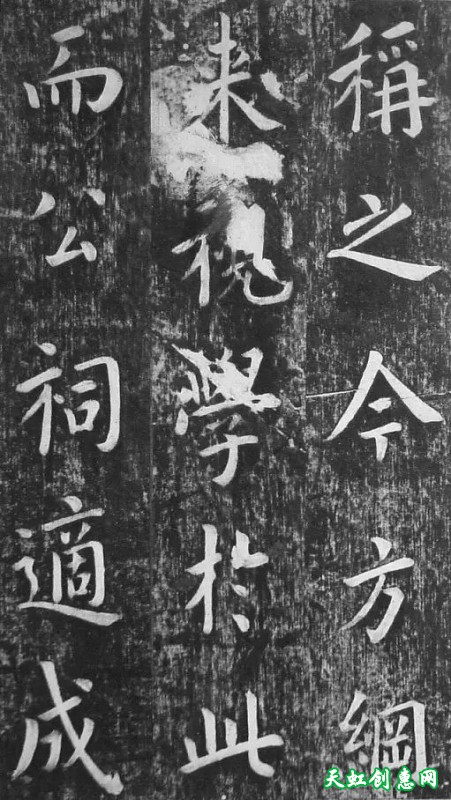 稱之今方綱
来視學於此
而公祠適成
天虹创惠网